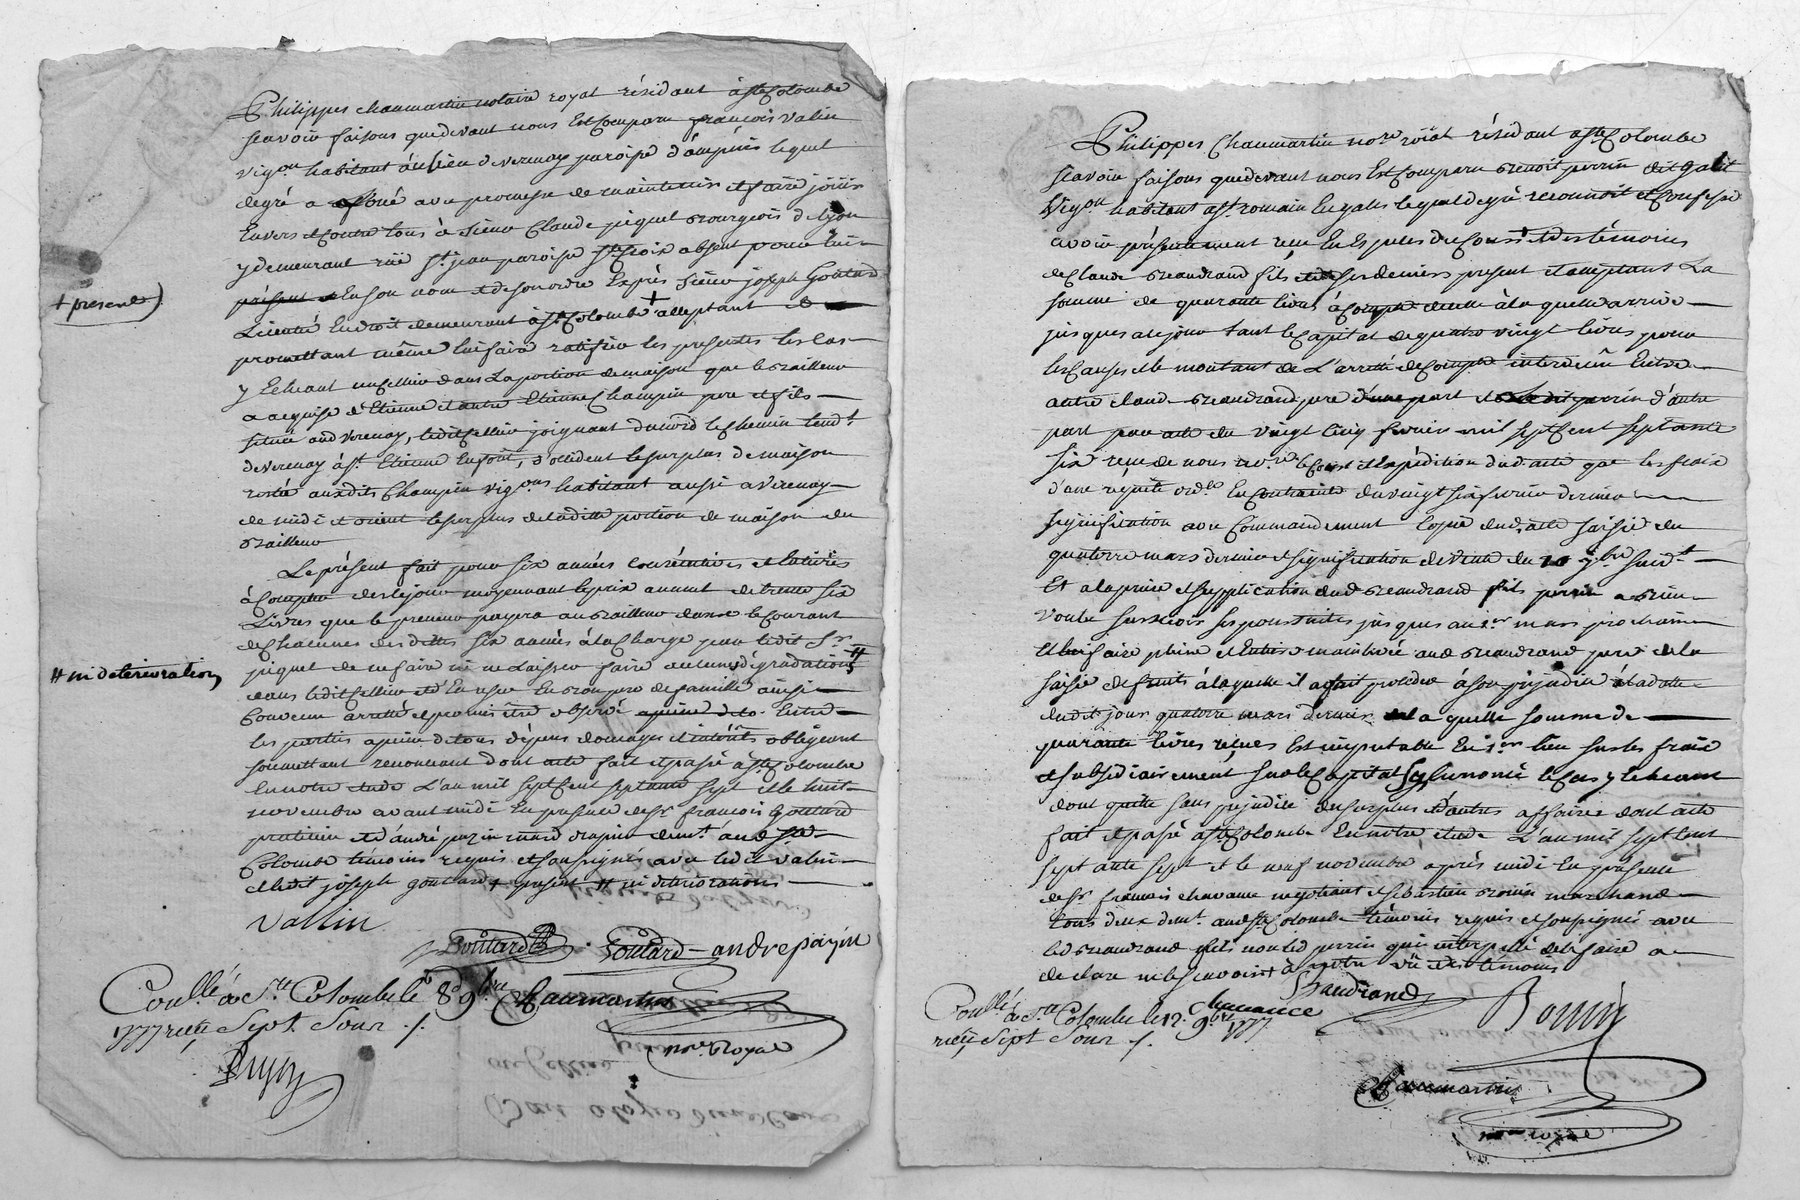 Philippes chaumartin notaire royal résidant à ste Colombe
scavoir faisons que devant nous Est comparu françois valin
vigon habitant au lieu de verenay paroisse d'ampuis lequel
de gré a affermé avec promesse de maintenir et faire jouir
Envers et contre tous à sieur Claude piquet bourgeois de lyon
y demeurant rüe st jean paroisse ste Croix absent pour lui
présent et En son nom et de son ordre Exprès sieur joseph Goutard
Licentié En droit demeurant à ste Colombe + acceptant
promettant même lui faire ratifier les presentes le cas
+ present)
y Echeant un cellier dans La portion de maison que le bailleur
a acquise d'Etienne et autre Etienne Champin pere et fils
située aud verenay, ledit cellier joignant du nord le chemin tendt
de verenay à st Etienne , d'occident le surplus de maison
resté auxdits Champin vigons habitant aussi a verenay
de midi et orient le surplus de ladite portion de maison du
bailleur
Le présent fait pour six années consécutives et Entieres
à compter de ce jour moyennant le prix annuel de trente six
Livres que le preneur payera au bailleur dans le courant
de chacunes des dittes six années à la Charge par ledit Sr
piquet de ne faire ni ne Laisser faire aucunes dégradations #
# ni déterioration
dans ledit cellier et d'En user En bon pere de famille ainsi
Convenu arrêté et promis être observé Entre
les parties a peine de tous dépens domages et interêts obligeant
soumettant renonçant dont acte fait et passé à ste Colombe
En notre étude L'an mil sept cent septante sept et le huit
novembre avant midi En présence de sr françois Goutard
praticien et d'andré pazin mard drapier demt aud ste
Colombe témoins requis et soussignés avec ledit valin
et ledit joseph goutard + present # ni deteriorations
vallin
Goutard Goutard andre pazin
Conllé à Ste Colombe le 8e 9bre
1777 reçu Sept Sous
Chaumartin
nore Royal
Philippes Chaumartin nore roïal résidant a ste Colombe
scavoir faisons que devant nous Est comparu benoit perrin dit Galet
Vigon habitant a st romain En galet lequel de gré reconnoit et confesse
avoir présentement reçu En Especes du cours et des témoins
de Claude beaudrand fils present et acceptant La
somme de quarante livres à compte de celle à laquelle arrive
jusques a ce jour tant le capital de quatre vingt livres pour
les causes et le montant de L'arrêté de compte intervenu Entre
autre Claude beaudrand pere d'une part et Ledit perrin d'autre
part par acte du vingt cinq fevrier mil sept cent septante
six reçu de nous nore le coust et Expédition dud. acte que les frais
d'une requête ordce En contrainte du vingt six fevrier dernier
signification avec Commandement Copie dud. acte saisie du
quatorze mars dernier et signification de vente du 10 7bre suivt
Et a la priere et supplication dud beaudrand fils perrin a bien
voulu surseoir ses poursuites jusques au 1er mars prochain
et lui faire pleine et Entiere mainlevée aud beaudrand pere de la
saisie de fruits à laquelle il a fait procéder à son préjudice
dudit jour quatorze mars dernier laquelle somme de
quarante livres reçues Est imputable En 1er lieu sur les frais
et subsidiairement sur le capital le cas y Echeant
dont quitte sans préjudice du surplus et d'autres affaires dont acte
fait et passé a ste Colombe En nôtre étude L'an mil sept cent
sept ante sept et le neuf novembre après midi En présence
de sr françois chavance negotiant et sebastien bonin marchand
tous deux demt aud ste Colombe témoins requis et soussignés avec
led beaudrand fils non led perrin qui interpellé de le faire a
declaré ne le scavoir à notre vû et des témoins
Baudrand
Chavance
Bonin
Conllé à Ste Colombe le 12 9bre 1777
reçu Sept Sous
Chaumartin
nore royal